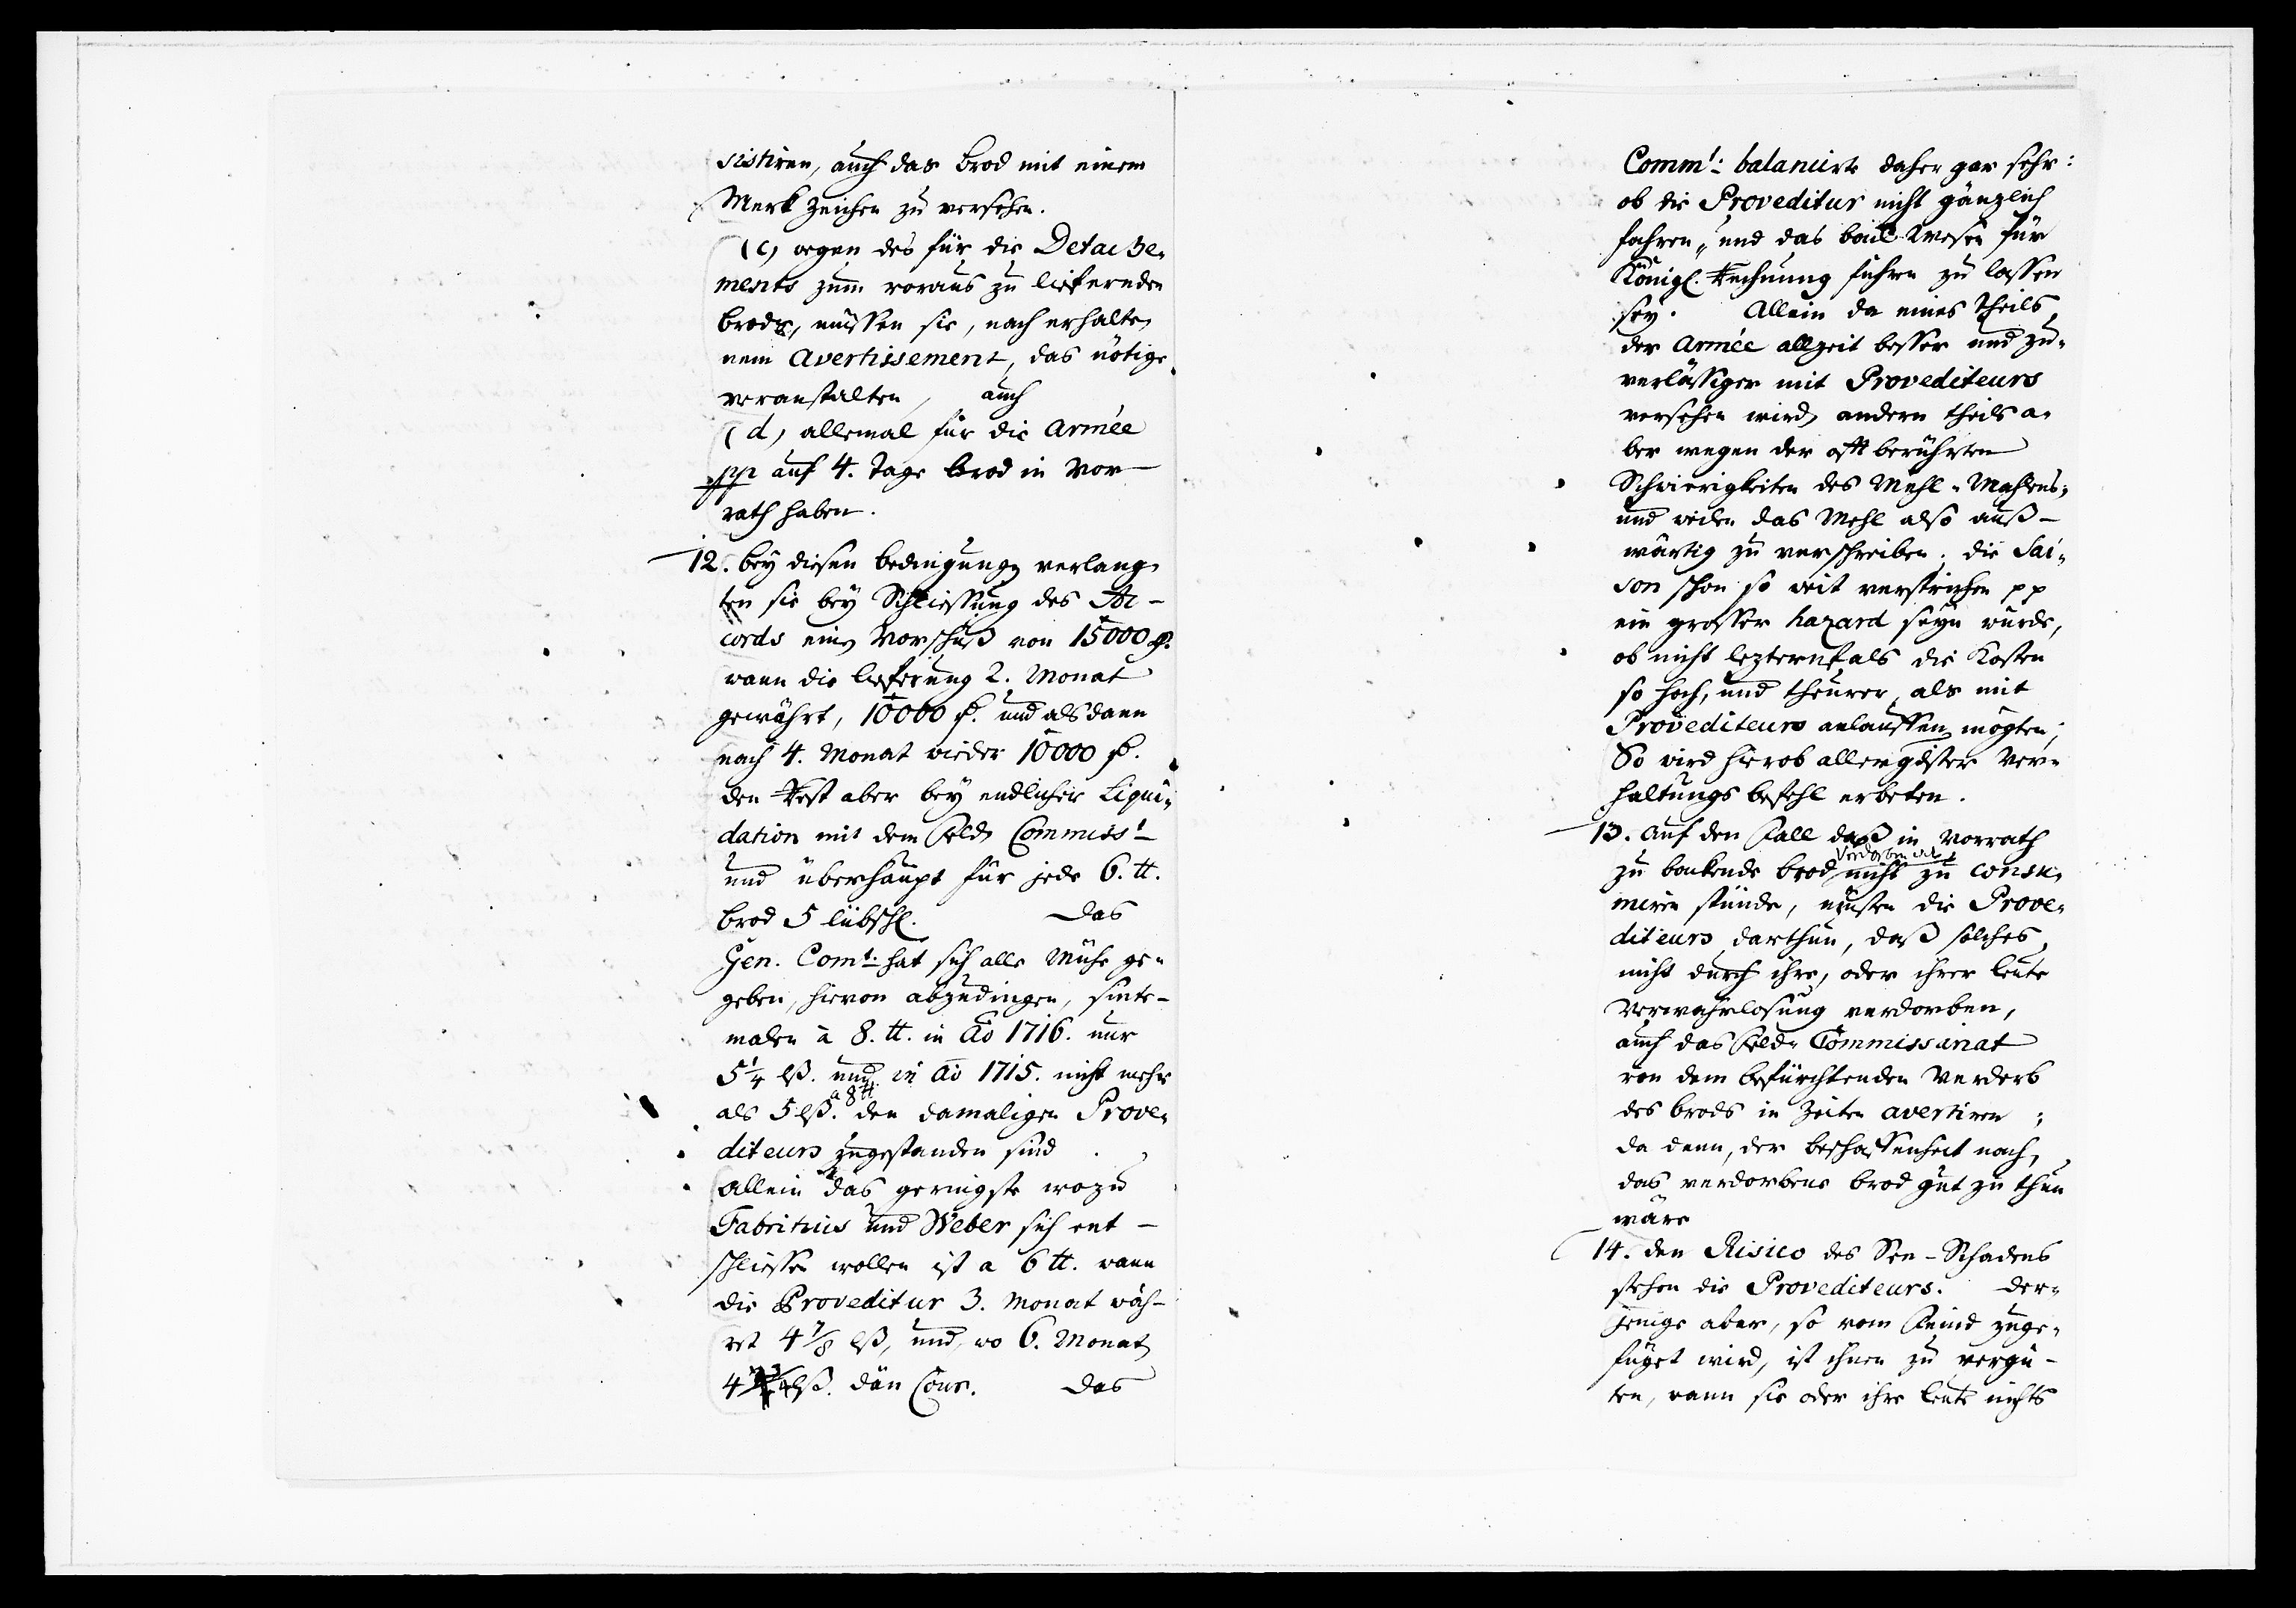 sistiren, auch das Brod mit einem
Merkzeichen zu versehen.
(c) wegen des für die Detache-
ments zum voraus zu liefernden
Brods, müssen sie, nach erhalte-
nem Avertissement, das nötige
veranstalten, auch
(d) allemal für die Armée
pp auf 4. Tage Brod in Vor-
rath haben.
12. Bey diesen Bedingungen verlang-
ten sie bey Schliessung des Ac-
cords einen Vorschuß von 15000 
wann die Lieferung 2. Monat
gewährt, 10000 und alsdann
nach 4. Monat wieder 10000
den Rest aber bey endlicher Liqui-
dation mit dem Feld Commiss:t
und überhaupt für jede 6. tt.
Brod 5 lübschl. Das
Gen. Com:t hat sich alle Mühe ge-
geben, hievon abzudingen, sinte-
malen à 8. tt. in Ao 1716. nur
5 1/4 lß. und in Ao 1715. nicht mehr
als 5 lß. a 8 tt den damaligen Prove-
diteurs zugestanden sind
Allein das geringste wozu
Fabritius und Weber sich ent-
schliessen wollen ist a 6 tt. wann
die Proveditur 3. Monat wäh-
ret 4 7/8 lß, und, wo 6. Monat
4 lß. dän Cour. Das
Comm:t balancirte daher gar sehr:
ob die Proveditur nicht gänzlich
fahren, und das Wesen für
Königl. Rechnung führen zu lassen
sey. Allein da eines Theils
der Armée allzeit besser und zu-
verlässiger mit Provediteurs
versehen wird, andern theils a-
ber wegen der oft berührten
Schwierigkeiten des Mehl-Mahlens,
und das Mehl also auß-
wärtig zu verschreiben, die Sai-
son schon so weit verstrichen pp
ein grosser hazard seyn würde,
ob nicht lezternfals die Kosten
so hoch, und theurer, als mit
Provediteurs anlauffen mögten;
So wird hierob allergdster Ver-
haltungs befehl erbeten.
13. Auf den Fall daß in Vorrath
zu backende Brod nicht zu consu-
miren stünde, müsten die Prove-
diteurs darthun, daß solches
nicht durch ihre, oder ihrer Leute
Verwahrlosung verdorben,
auch das Feld-Commissariat
von dem befürchtenden Verderb
des Brods in Zeiten avertiren;
da denn, der Beschaffenheit nach,
das verdorbene Brod gut zu thun
wäre
14. Den Risico des See-Schadens
stehen die Provediteurs. Der-
jenige aber, so vom Feind zuge-
füget wird, ist ihnen zu vergü-
ten, wann sie oder ihre Leute nichts